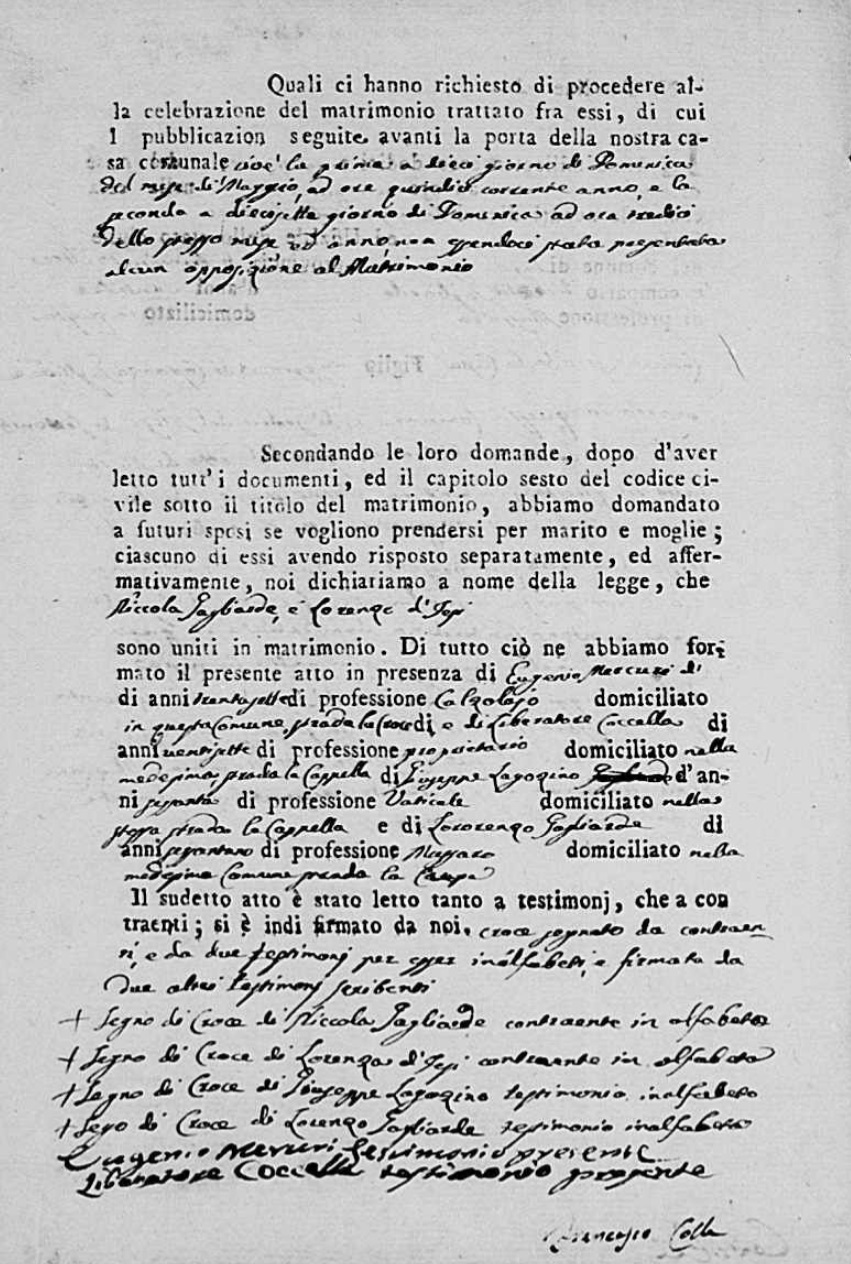 Quali ci hanno richiesto di procedere al-
la celebrazione del matrimonio trattato fra essi, di cui
l pubblicazion seguite avanti la porta della nostra ca-
sa comunale cioè la prima a dieci giorno di Domenica
del mese di Maggio, ad ore quindici corrente anno, e la
seconda a diecisette giorno di Domenica ad ora tredici
dello stesso mese ed anno, non essendoci stata presentata
alcun opposizione al Matrimonio
Secondando le loro domande, dopo d'aver
letto tutt'i documenti, ed il capitolo sesto del codice ci-
vile sotto il titolo del matrimonio, abbiamo domandato
a futuri sposi se vogliono prendersi per marito e moglie;
ciascuno di essi avendo risposto separatamente, ed affer-
mativamente, noi dichiariamo a nome della legge, che
Niccola Gagliarde, e Lorenza d'Issi
sono uniti in matrimonio. Di tutto ciò ne abbiamo for-
mato il presente atto in presenza di Eugenio Mercuri d'
di anni trentasette di professione Calzolajo domiciliato
in questa Comune strada la Croce di e di Liberatore Coccella di
anni ventisette di professione proprietario domiciliato nella
medesima strada la Cappella di Giuseppe Lagozino d'an-
ni sessanta di professione Vaticale domiciliato nella
stessa strada la Cappella e di Lororenzo Gagliarde di
anni sessantuno di professione Massaro domiciliato nella
medesima Comune strada la
Il sudetto atto è stato letto tanto a testimonj, che a con
traenti; si è indi firmato da noi, croce segnato da contraen-
ti, e da due testimonj per esser inalfabeti, e firmato da
due altri testimonj scribenti
+ Segno di Croce di Niccola Gagliarde contraente in alfabeto
+ Segno di Croce di Lorenza d'Issi contraente in alfabeta
+ Segno di Croce di Giuseppe Lagozino testimonio inalfabeto
+ Sego di Croce di Lorenzo Gagliarde testimonio inalfabeto
Eugenio Mercuri testimonio presente
Liberatore Coccella testimonio presente
Francesco Colle